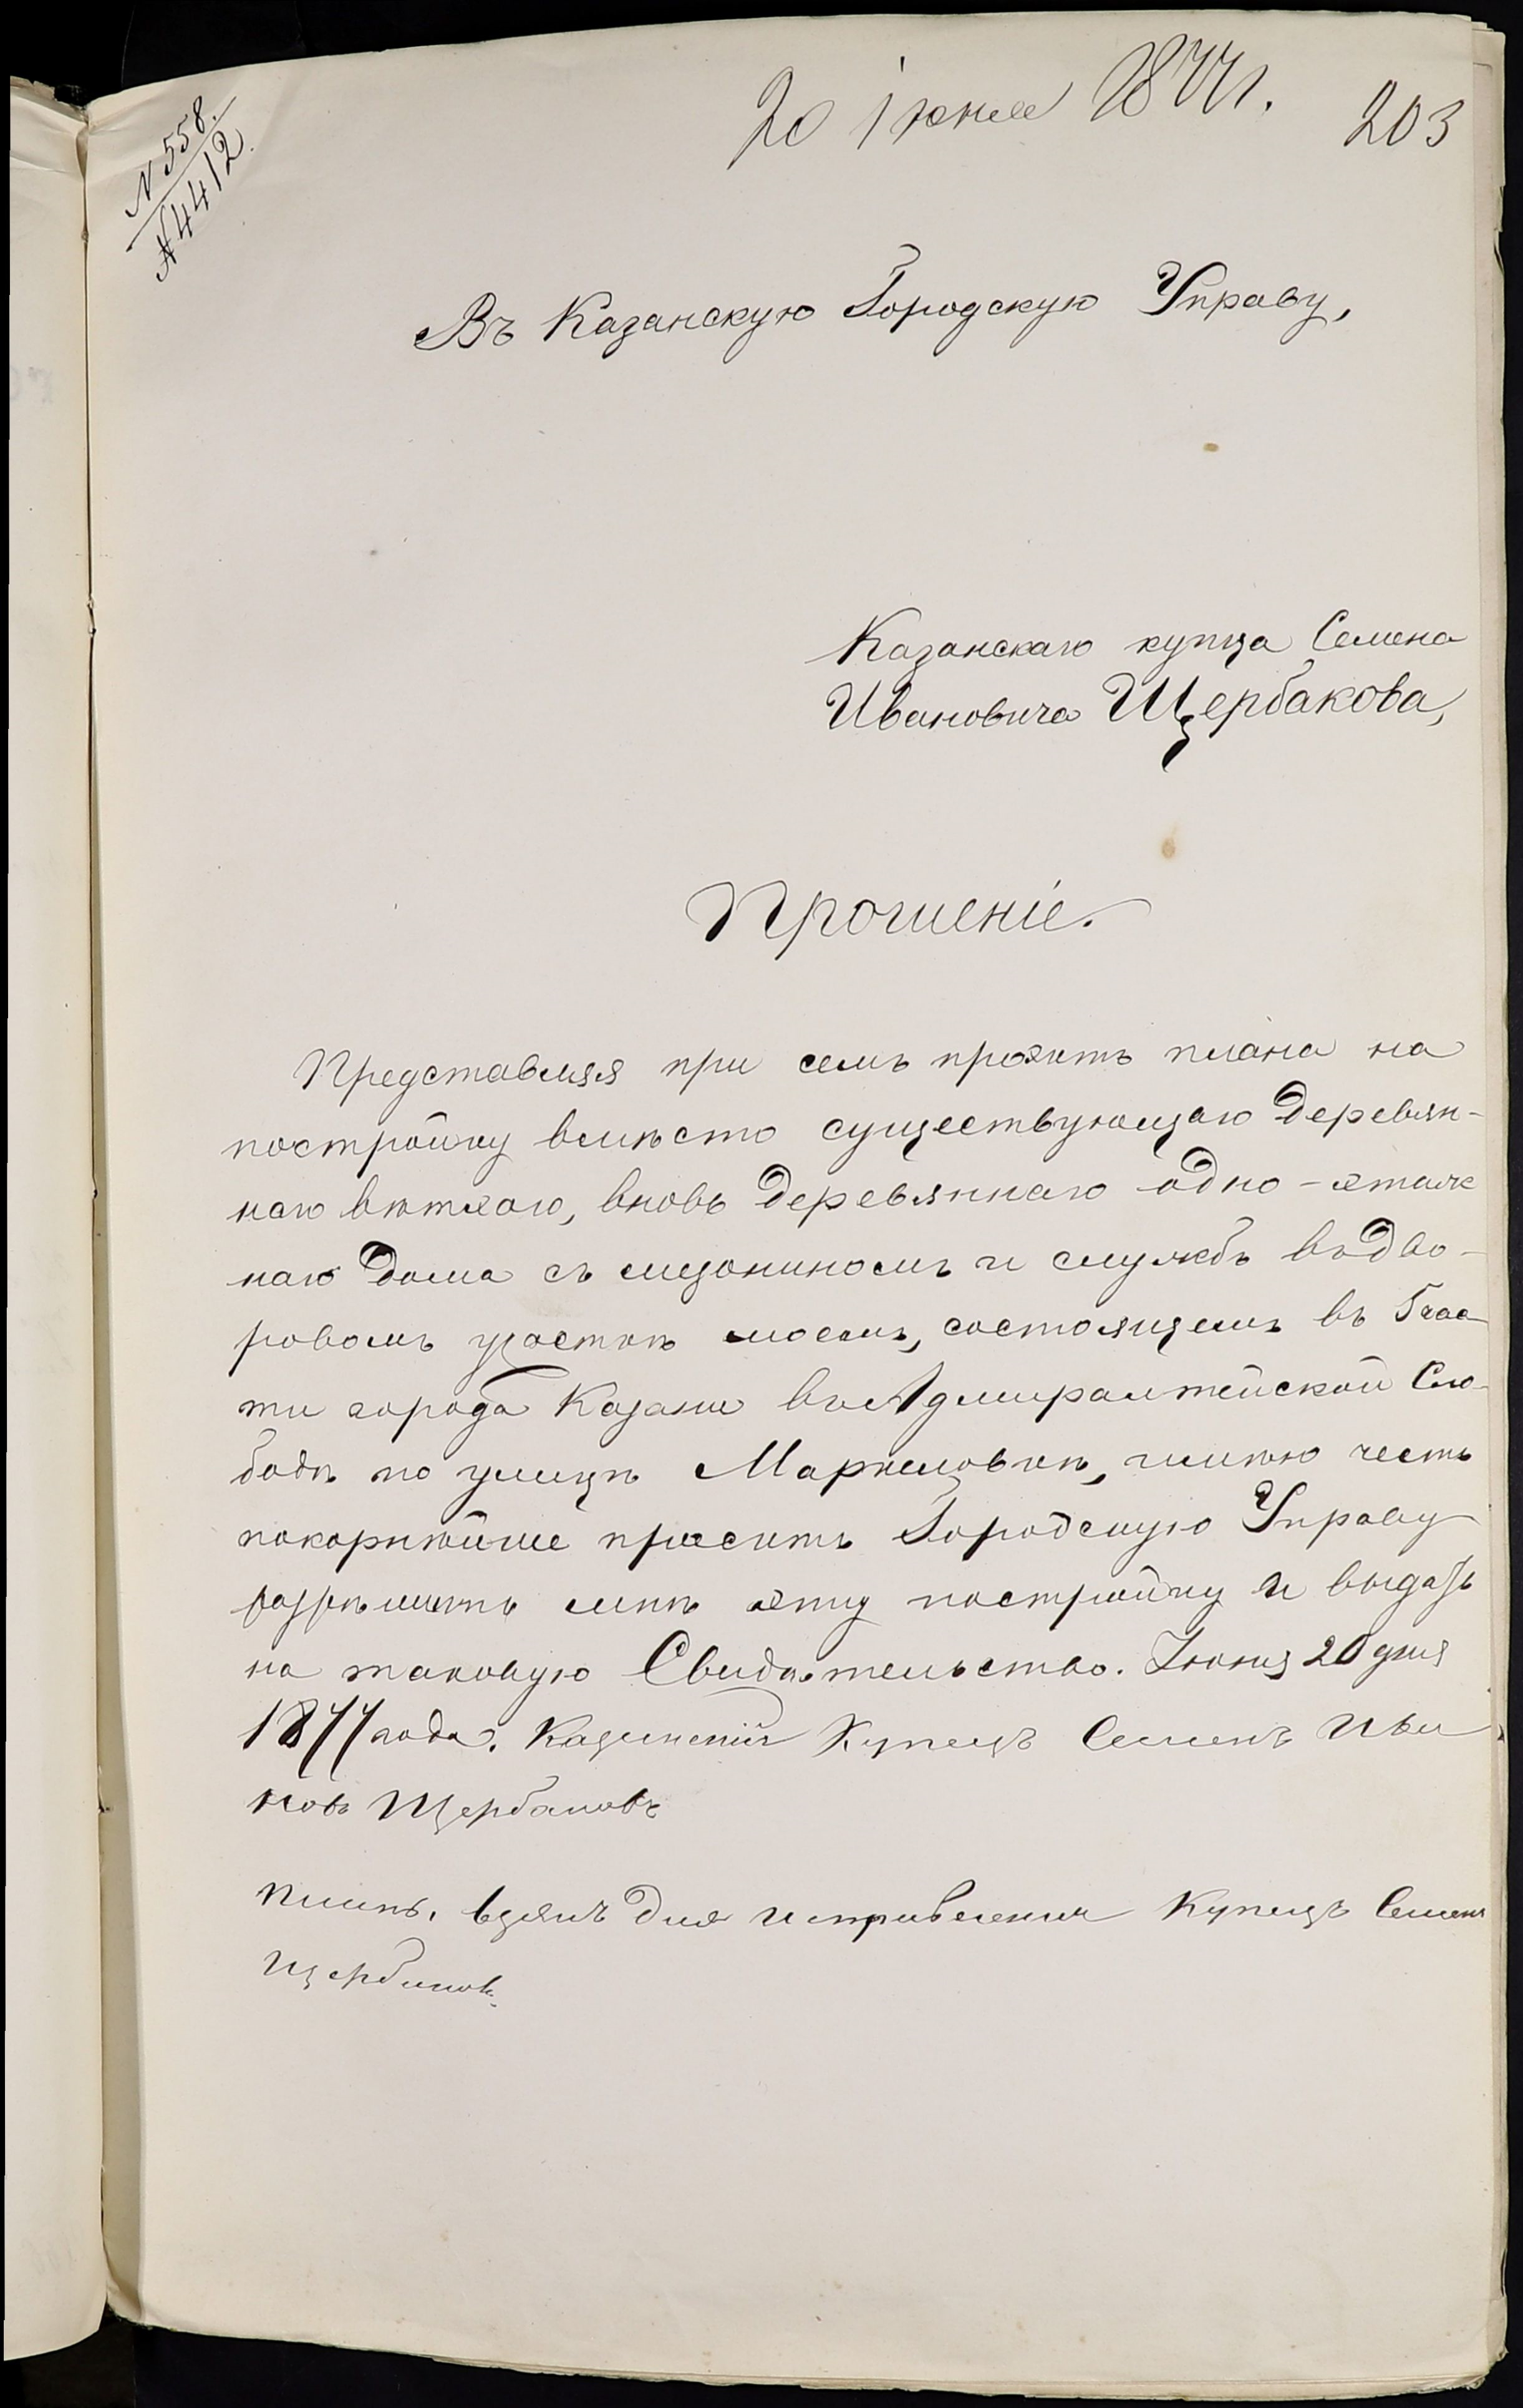 20 іюня 1877 г.
203
N 558.
N 4412.
Въ Казанскую Городскую Управу,
Казанскаго купца Семена
Ивановича Щербакова,
Прошеніе.
Представляя при семъ проэктъ плана на
постройку вмѣсто существующаго деревян-
наго вѣтхаго, вновь деревяннаго одно-этаж
наго дома съ мезониномъ и службъ въ дво-
ровомъ участкѣ моемъ, состоящемъ въ 5 час
ти города Казани въ Адмиралтейской Сло-
бодѣ по улицѣ Маркеловкѣ, имѣю честь
покорнѣйше просить Городскую Управу
разрѣшить мнѣ эту постройку и выдать
на таковую Свидѣтельство. Іюня 20 дня
1877 года. Казанскій Купецъ Семенъ Ива
новъ Щербаковъ
планъ взялъ для исправления Купецъ Семенъ
Щербаковъ